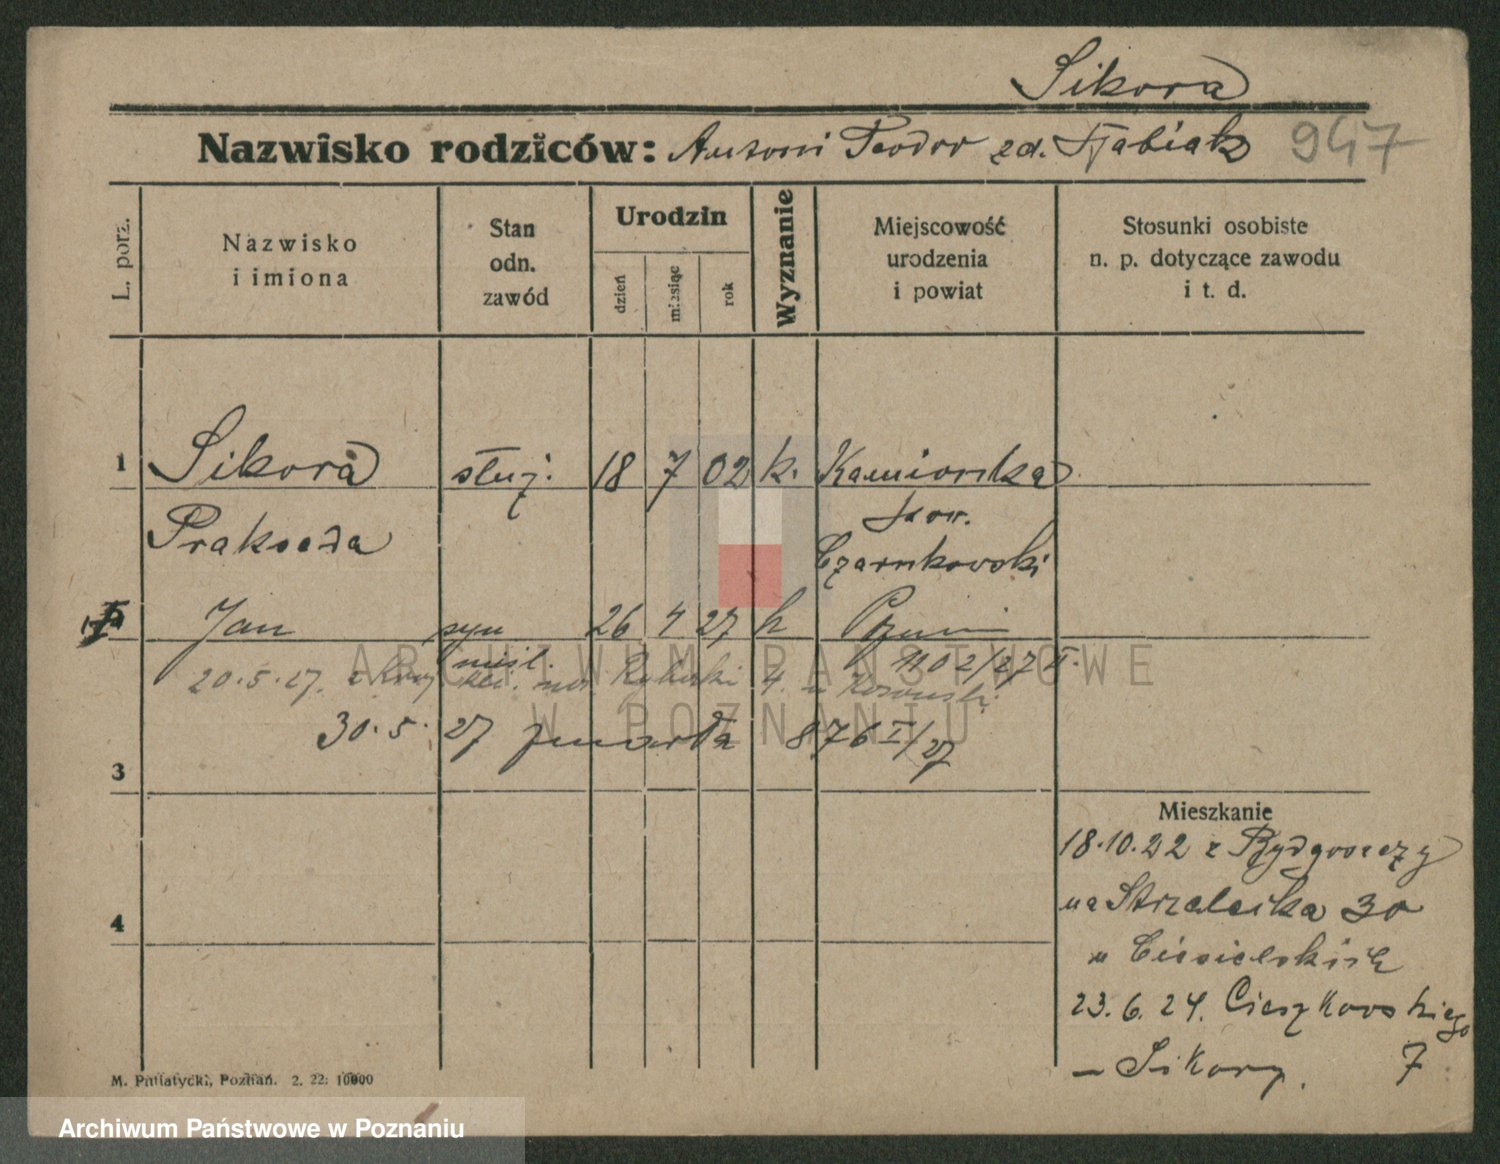 Sikora
Nazwisko rodziców: Antoni Teodor zd. 947
L. porz.
Nazwisko
i imiona
Stan
odn.
zawód
Urodzin
dzień
miesiąc
rok
Wyznanie
Miejscowość
urodzenia
i powiat
Stosunki osobiste
n. p. dotyczące zawodu
i t. d.
1 Sikora służ. 18 7 02 k. Kamionka
Prakseda pow.
Czarnkowski
Jan syn 26 4 27 k
nieśl. 1102/27 II.
20.5.27. 4.
30.5.27 zmarła 876 I/27
3
Mieszkanie
18.10.22 z Bydgoszczy
na Strzelecka 30
4
u Ciesielskich
23.6.24. Cieszkowskiego
– Sikory. 7
M. Putiatycki, Poznań. 2. 22: 10000
ARCHIWUM PAŃSTWOWE
W POZNANIU
Archiwum Państwowe w Poznaniu